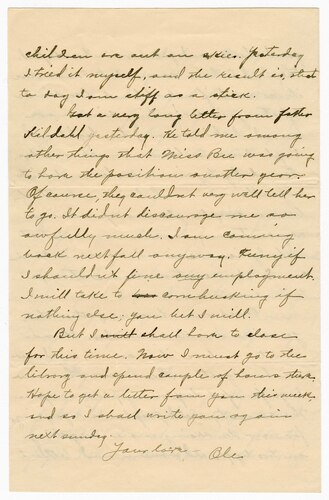 children are out on skies. Yesterday
I tried it myself, and the result is, that
to day I am stiff as a stick.
Got a very long letter from father
Kildahl yesterday. He told me among
other things that Miss Bee was going
to have the position another year.
Of course, they couldn't very well tell her
to go. It didn't discourage me so
awfully much. I am coming
back next fall anyway. Even if
I shouldn't fine any employment
I will take to cornhusking if
nothing else; you bet I will.
But I will shall have to close
for this time. Now I must go to the
library and spend couple of hours there.
Hope to get a letter from you this week,
and so I shall write you again
next sunday.
Ole